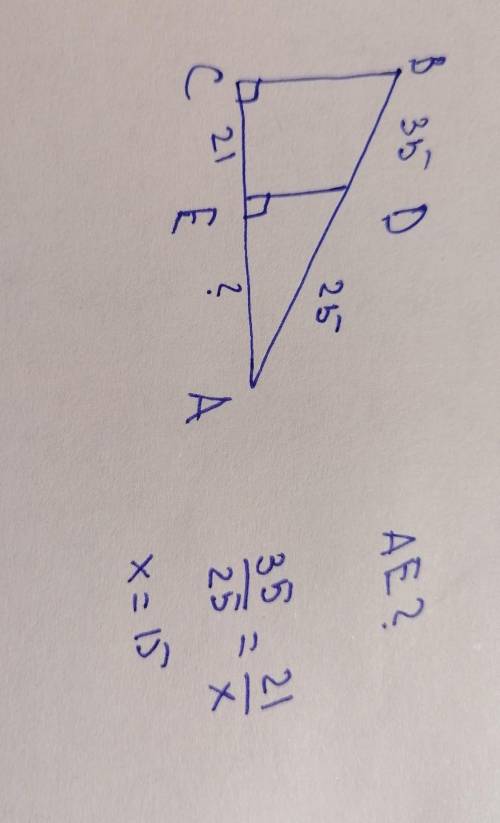 B
35
D
25
C
21
E
?
A
AE?
35/25 = 21/x
x = 15